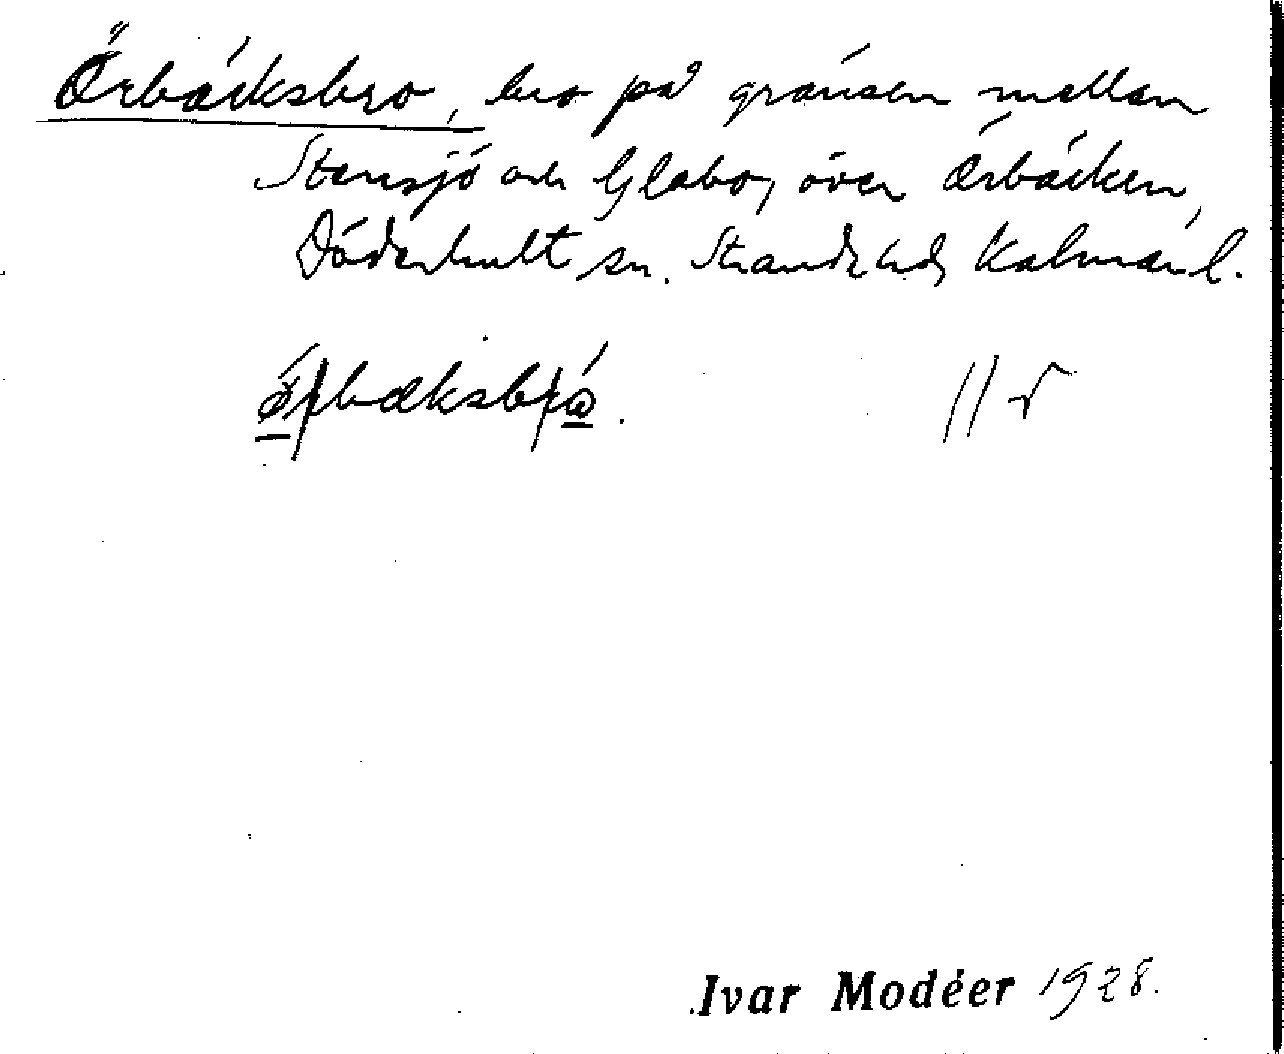 Örbäcksbro, bro på gränsen mellan
Stensjö och Glabo, över Örbäcken,
Döderhult sn. Strands hd, Kalmar l.
Ivar Modéer 1928.